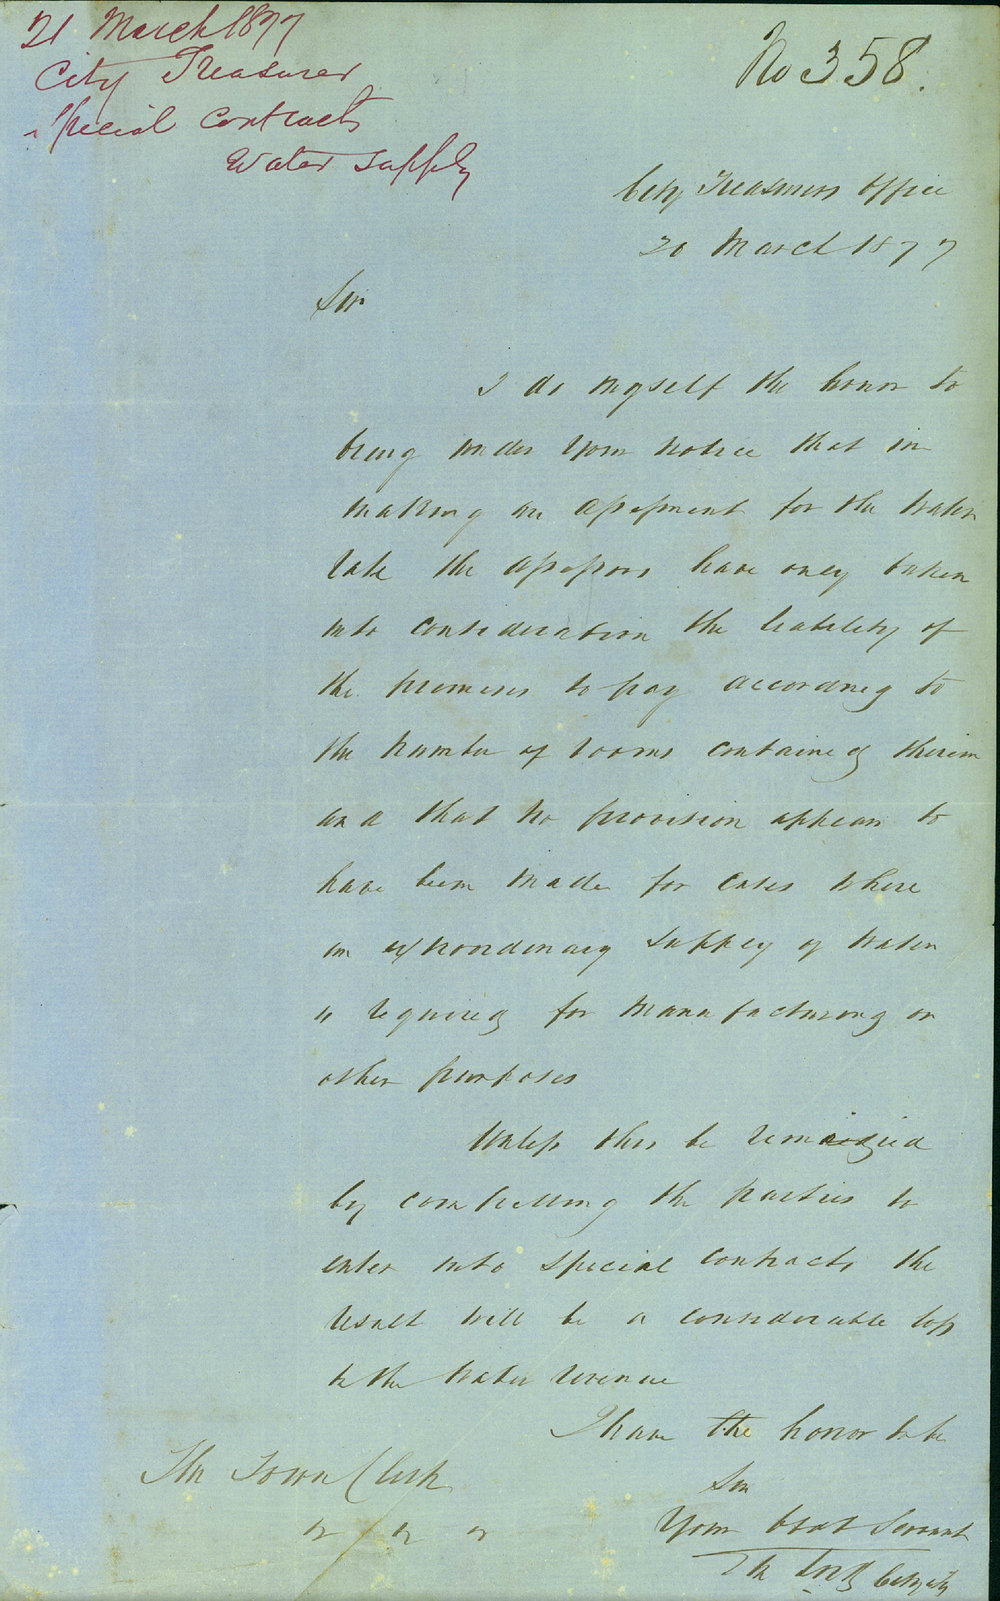 21 March 1877
City Treasurer
Special Contracts
Water Supply
No 358.
City Treasurers Office
20 March 1877
Sir
I do myself the honor to
bring under your notice that in
making an assessment for the Water
Rate the assessors have only taken
into consideration the liability of
the premises to pay according to
the number of rooms contained therein
and that no provision appears to
have been made for cases where
an extraordinary supply of water
is required for manufacturing or
other purposes
Unless this be remedied
by compelling the parties to
enter into special contracts the
result will be a considerable loss
to the Water revenue
I have the honor to be
Sir
Your obdt Servant
The Town Clerk